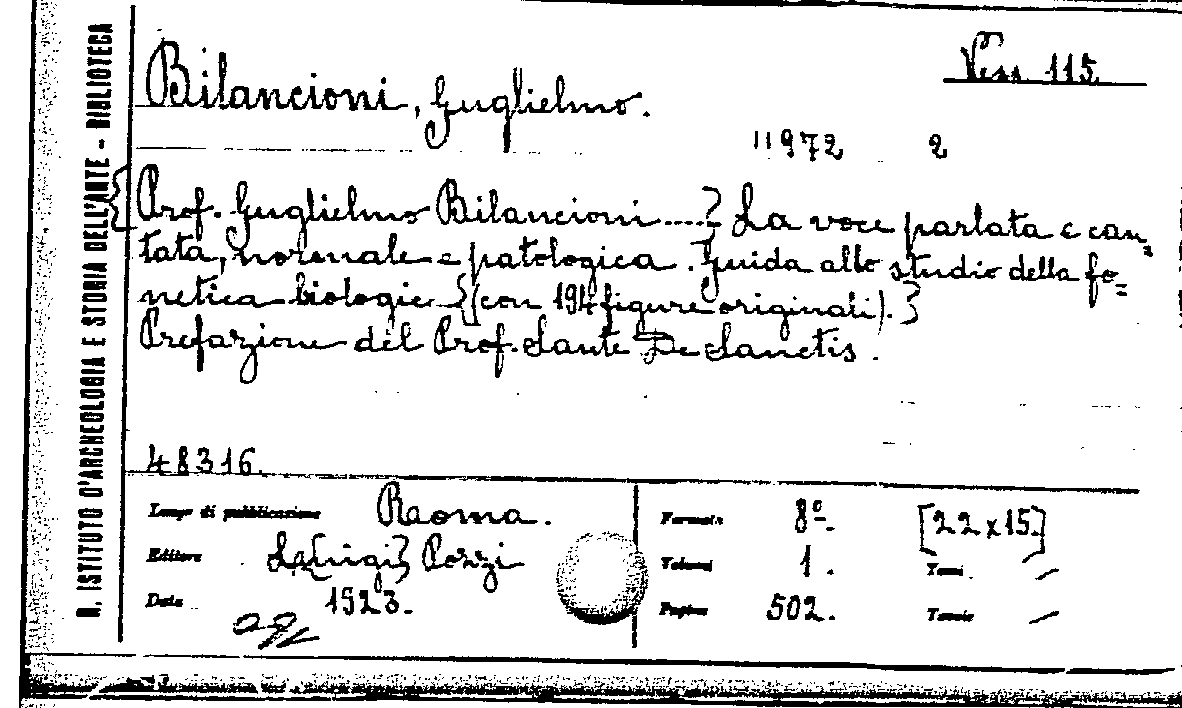 R. ISTITUTO D'ARCHEOLOGIA E STORIA DELL'ARTE - BIBLIOTECA
Vess 115.
Bilancioni, Guglielmo.
11972 2
{Prof. Guglielmo Bilancioni ....} La voce parlata e can=
tata, normale e patologica. Guida allo studio della fo=
netica biologic {(con 194 figure originali).}
Prefazione del Prof. Sante De Sanctis.
48316.
Luogo di pubblicazione Roma.
Editore L{uigi} Pozzi
Data 1923.
Formato 8º.
[22x15.]
Volumi 1.
Tomi /
Pagine 502.
Tavole /